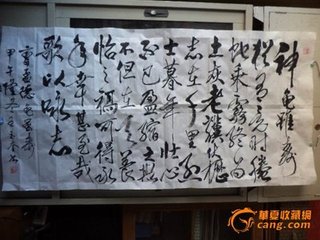 神龜雖壽
猶有竟時騰
蛇乘霧終為
土灰老驥伏櫪
志在千里烈
士暮年壯心
不已盈縮之期
不但在天養
怡之福可得永
年幸甚至哉
歌以咏志
曹孟德龜雖壽
甲午隆冬
華夏收藏網
cang.com